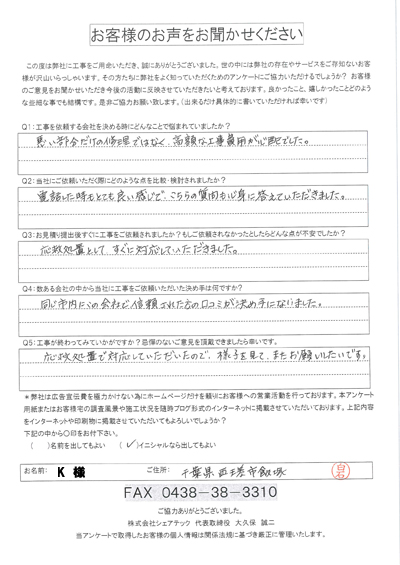 お客様のお声をお聞かせください
この度は弊社に工事をご用命いただき、誠にありがとうございました。世の中には弊社の存在やサービスをご存知ないお客様
が沢山いらっしゃいます。その方たちに弊社をよく知っていただくためのアンケートにご協力いただけるでしょうか？ お客様
のご意見をお聞かせいただき今後の活動に反映させていきたいと考えております。良かったこと、嬉しかったことどのよう
な些細な事でも結構です。是非ご協力お願い致します。（出来るだけ具体的に書いていただければ幸いです）
Q1：工事を依頼する会社を決める時にどんなことで悩まれていましたか？
悪い部分だけの修理ではなく、高額な工事費用が心配でした。
Q2：当社にご依頼いただく際にどのような点を比較・検討されましたか？
電話した時もとても良い感じで、こちらの質問も心身に答えていただきました。
Q3：お見積り提出後すぐに工事をご依頼されましたか？もしご依頼されなかったとしたらどんな点が不安でしたか？
応救処置として、すぐに対応していただきました。
Q4：数ある会社の中から当社に工事をご依頼いただいた決め手は何ですか？
同じ市内にこの会社で依頼された方の口コミが決め手になりました。
Q5：工事が終わってみていかがですか？忌憚のないご意見を頂戴できましたら幸いです。
応救処置で対応していただいたので、様子を見て、またお願いしたいです。
＊弊社は広告宣伝費を極力かけない為にホームページだけを頼りにお客様への営業活動を行っております。本アンケート
用紙またはお客様宅の調査風景や施工状況を随時ブログ形式のインターネットに掲載させていただいております。上記内容
をインターネットや印刷物に掲載させていただいてもよろしいでしょうか？
下記の中から〇印をお付下さい。
（ ）名前を出してもよい （✓）イニシャルなら出してもよい
お名前： K 様 ご住所： 千葉県 市
FAX 0438-38-3310
ご協力ありがとうございました。
株式会社シェアテック 代表取締役 大久保 誠二
当アンケートで取得したお客様の個人情報は関係法規に基づき厳正に管理いたします。